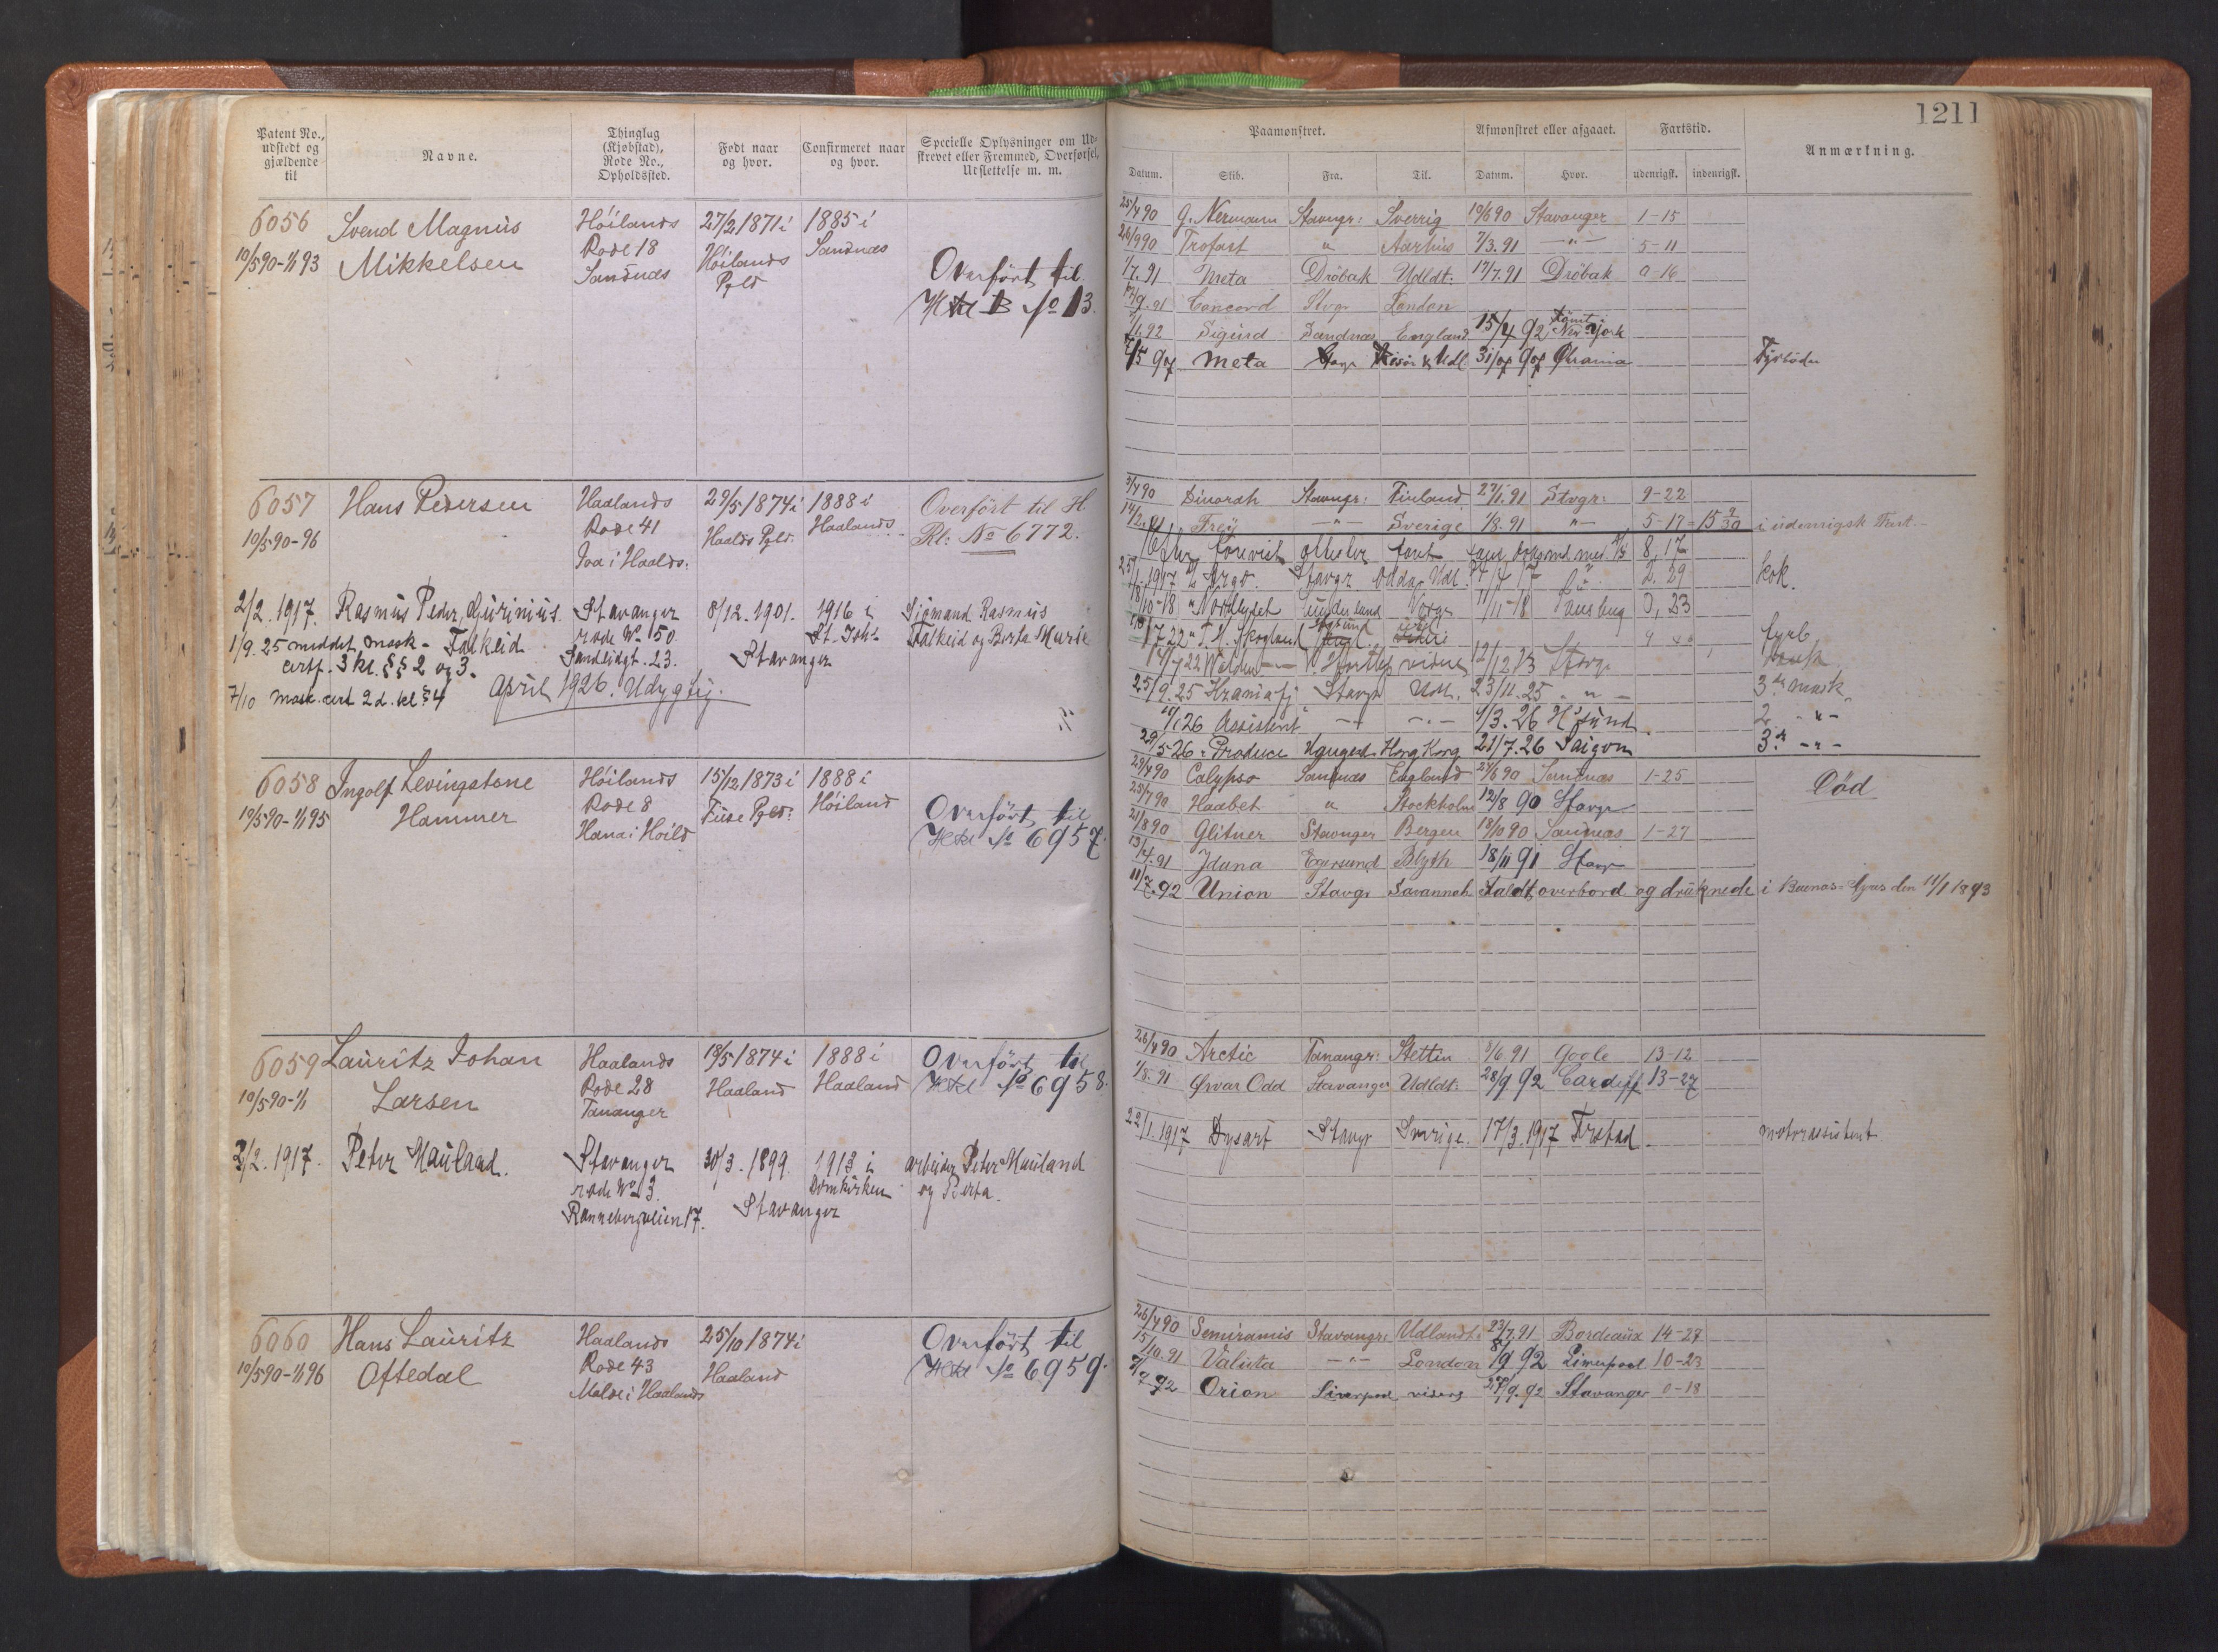 1211
Patent No., udstedt og gjældende til
Navne.
Thinglag (Kjøbstad), Rode No., Opholdssted.
Født naar og hvor.
Confirmeret naar og hvor.
Specielle Oplysninger om Udskrevet eller Fremmed, Overførsel, Udslettelse m. m.
Paamønstret.
Afmønstret eller afgaaet.
Fartstid.
Anmærkning.
Datum. Skib. Fra. Til. Datum. Hvor. udenrigsk. indenrigsk.
6056 Svend Magnus Høilands 27/2 1871 i 1885 i
10/5 90-1/1 93 Mikkelsen Rode 18 Høilands Sandnæs
Sandnæs Pgld
Overført til
No 13.
25/4 90 G. Nermann Stavngr: Sverrig 10/6 90 Stavanger 1-15
26/9 90 Trofast " Aarhus 7/3. 91 -"- 5-11
1/7. 91 Meta Drøbak Udldt: 17/7. 91 Drøbak 0-16
Concord Stvgr London
1/1. 92 Sigurd Sandnæs England 15/4 92 Rømt i New York
Meta Fyrbøder
6057 Hans Pedersen Haalands 29/5 1874 i 1888 i Overført til H
10/5 90-96 Rode 41 Haalds Pgld. Haalands Rl: No 6772.
Joa i Haalds:
3/4 90 Dinorah Stavngr: Finland 27/1. 91 Stvgr: 9-22
Frey -"- Sverige 1/8. 91 "- 5-17 = 15 9/30 i udenrigsk Fart.
2/2. 1917. Rasmus Peder Stavanger 8/12. 1901. 1916 i Sigmund Rasmus
1/9. 25 middet. mask- Falkeid rode No 150 St. Joh: Falkeid og Berta Marie
certf. 3 kl. §§ 2 og 3. Sandeidgt. 23. Stavanger
7/10 mask. cert 2d. kl § 4 April 1926. Udygtig.
Efter forevist
1917 Argo. Stavgr Odda, Udl. 2. 29 kok.
Nordlyset Norge 11/11-18 0, 23
fyrb.
25/9. 25 Kraniafj Stavgr Udl. 23/11. 25 - " - 3die mask
1 26 Assistent -"- -"- 4/3. 26 2 - " -
29/5-26 Produce Hong Kong 21/7. 26 Saigon 3die - " -
6058 Ingolf Levingstone Høilands 15/12 1873 i 1888 i
10/5 90-1/1 95 Hammer Rode 8 Fuse Pgld: Høiland
Hana i Høild
Overført til
No 6957.
29/4 90 Calypso Sandnæs England 27/6 90 Sandnæs 1-25 Død
25/7 90 Haabet " Stockholm 12/8 90 Stavgr
21/8 90 Glitner Stavanger Bergen 18/10 90 Sandnæs 1-27
13/4. 91 Iduna Egersund Blyth 18/11 91 Stavgr
11/7. 92 Union Stavgr Savannah Faldt overbord og druknede i Buenos-Ayres den 11/1 1893
6059 Lauritz Johan Haalands 18/5 1874 i 1888 i Overført til
10/5 90-1/1 Larsen Rode 28 Haaland Haaland No 6958.
Tananger
26/4 90 Arctic Tananger: Stettin 3/6. 91 Goole 13-12
1/8. 91 Ørvar Odd Stavanger Udldt: 28/9 92 Cardiff 13-27
3/2. 1917. Peter Mauland. Stavanger 30/3. 1899. 1913 i arbeider Peter Mauland
rode No 3. Stavanger Domkirken og Berta.
Rannebergveien 17.
22/1. 1917 Dysart Stavgr Sverige. 17/3. 1917 Frstad. motorassistent
6060 Hans Lauritz Haalands 25/10 1874 i Overført til
10/5 90-1/1 96 Oftedal Rode 43 Haaland No 6959.
Malde i Haalands
26/4 90 Semiramis Stavangr: Udlandt: 23/7. 91 Bordeaux 14-27
15/10. 91 Valuta -"- London 8/9 92 Liverpool 10-23
92 Orion Liverpool videre 27/9. 92 Stavanger 0-18